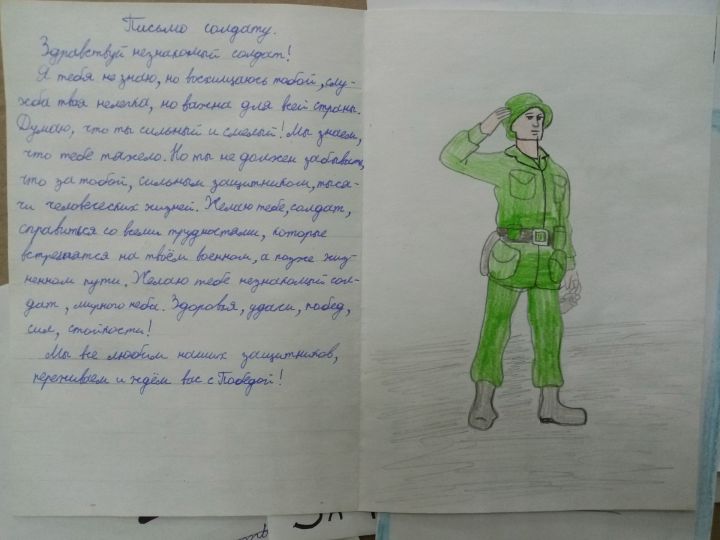 Письмо солдату.
Здравствуй незнакомый солдат!
Я тебя не знаю, но восхищаюсь тобой, слу-
жба твоя нелегка, но важна для всей страны.
Думаю, что ты сильный и смелый! Мы знаем,
что тебе тяжело. Но ты не должен забывать,
что за тобой, сильным защитником, тыся-
чи человеческих жизней. Желаю тебе, солдат,
справиться со всеми трудностями, которые
встретятся на твоём военном, а позже жиз-
ненном пути. Желаю тебе незнакомый сол-
дат, мирного неба. Здоровья, удачи, побед,
сил, стойкости!
Мы все любим наших защитников,
переживаем и ждём вас с Победой!